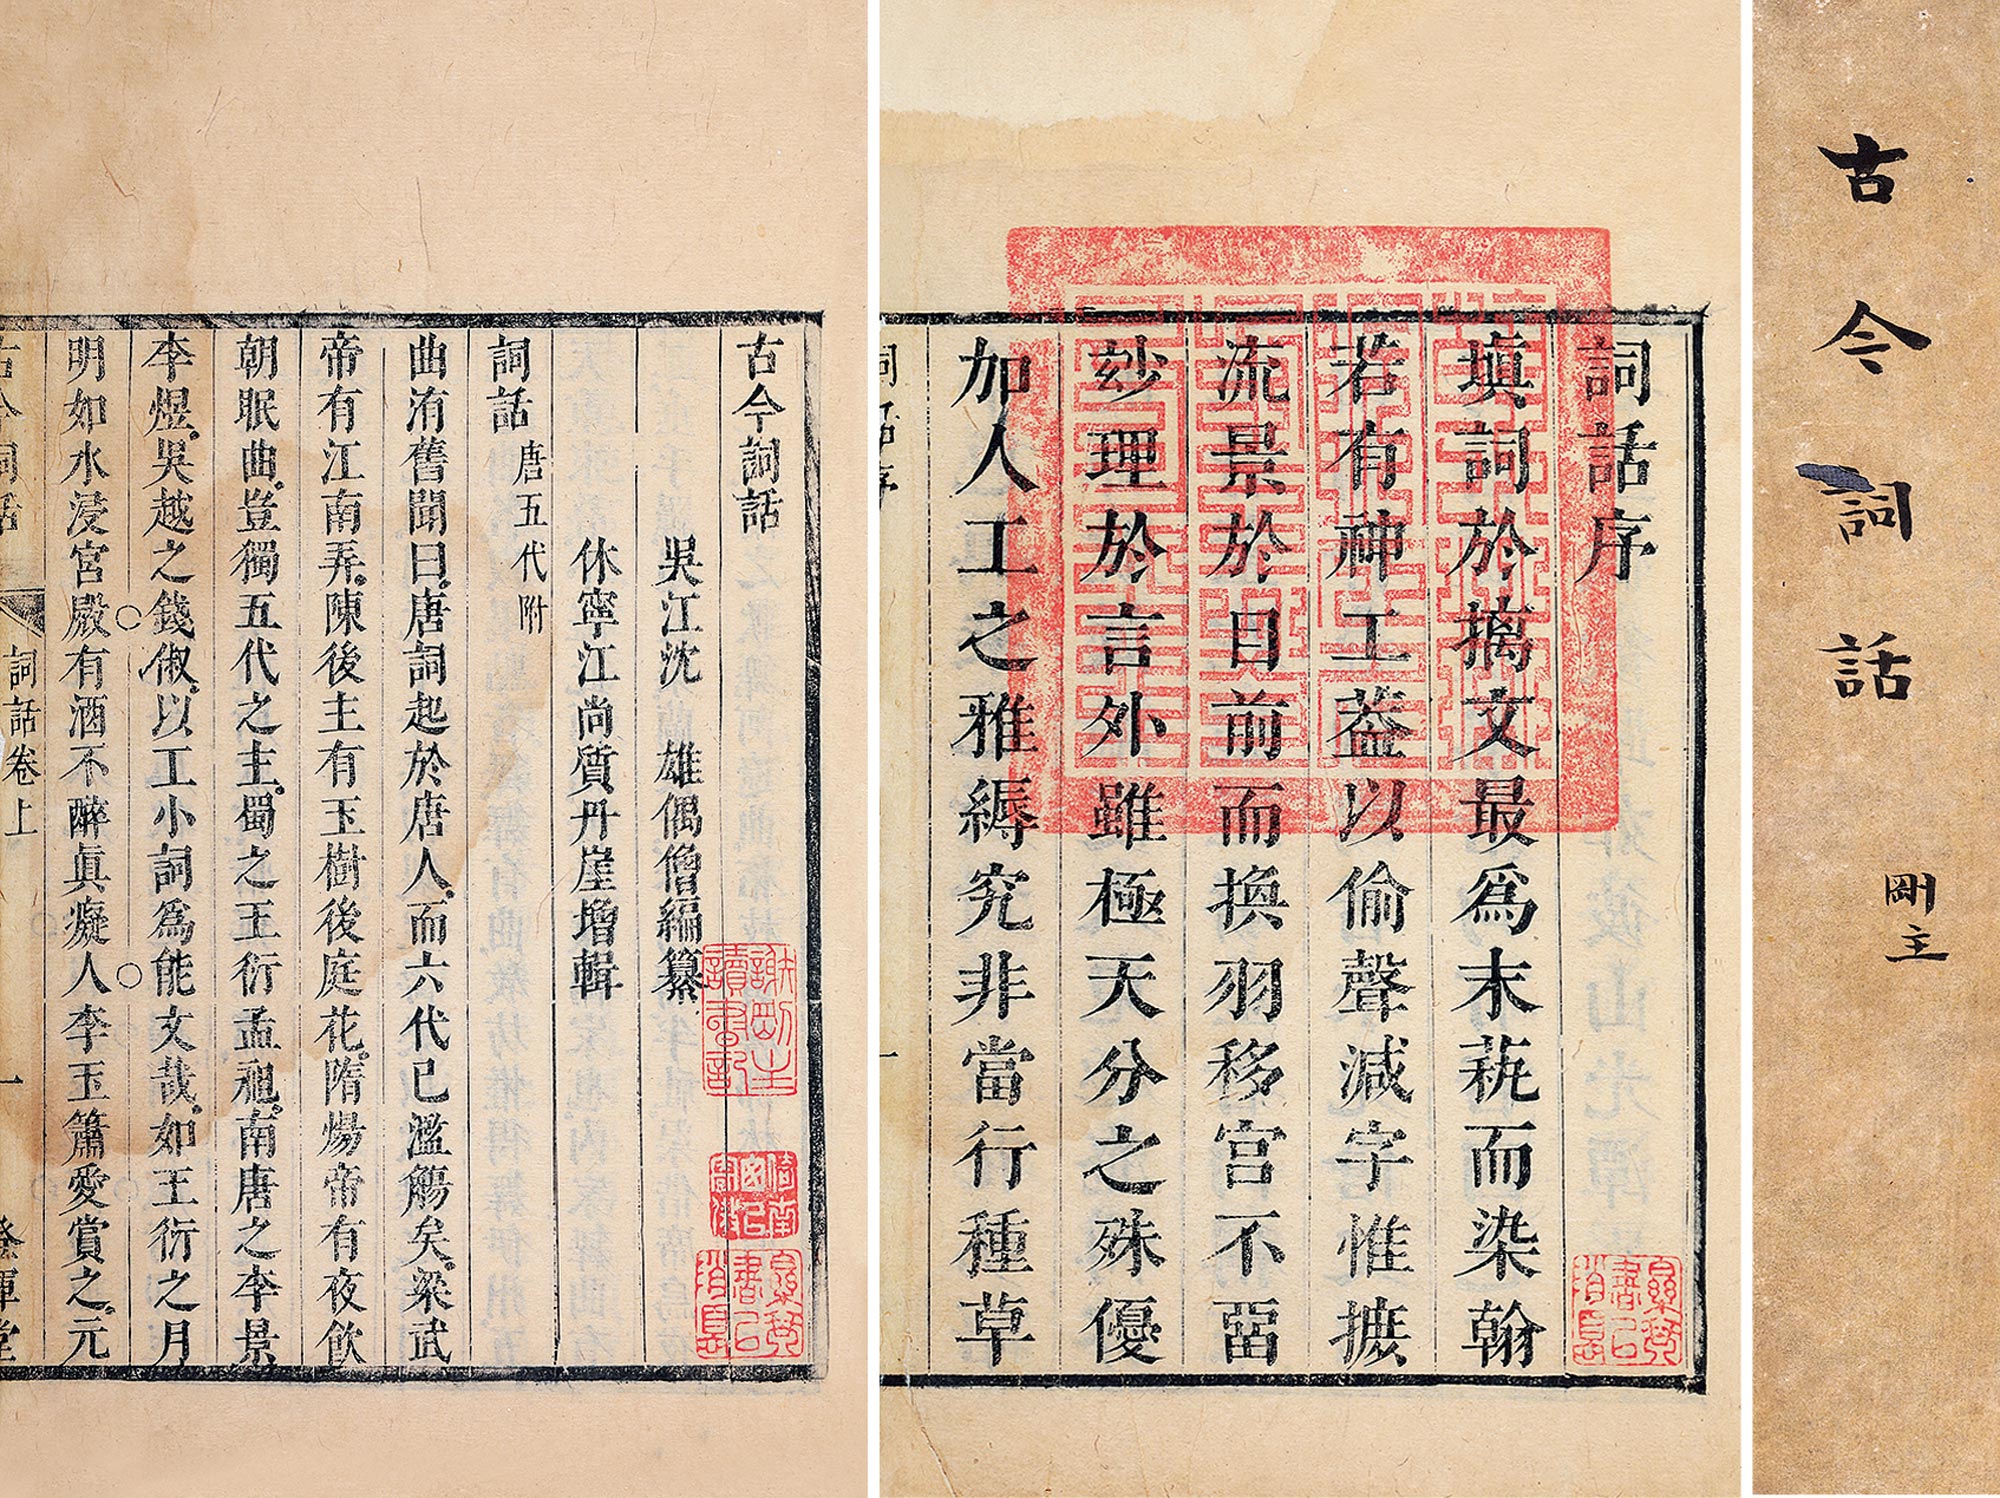 古今詞話
剛主
詞話序
填詞於摛文最爲末蓺而染翰
若有神工葢以偷聲減字惟摭
流景於目前而換羽移宮不畱
妙理於言外雖極天分之殊優
加人工之雅縟究非當行種草
詞話序
一
古今詞話
吳江沈　雄偶僧編纂
休寧江尚質丹崖增輯
詞話 唐五代附
曲洧舊聞曰唐詞起於唐人而六代已濫觴矣梁武
帝有江南弄陳後主有玉樹後庭花隋煬帝有夜飲
朝眠曲豈獨五代之主蜀之王衍孟昶南唐之李景
李煜吳越之錢俶以工小詞爲能文哉如王衍之月
明如水浸宮殿有酒不醉眞癡人李玉簫愛賞之元
古今詞話
詞話卷上
一
謝剛主讀書記